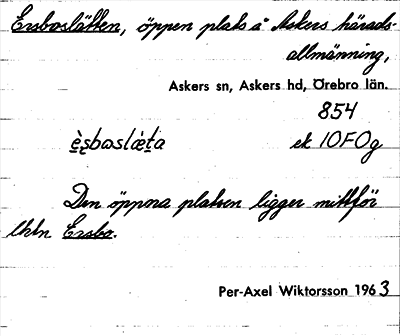 Ersboslätten, öppen plats å Askers härads-
allmänning,
Askers sn, Askers hd, Örebro län.
854
èsboslǽta ek 10F0g
Den öppna platsen ligger mittför
lhtn Ersbo.
Per-Axel Wiktorsson 1963